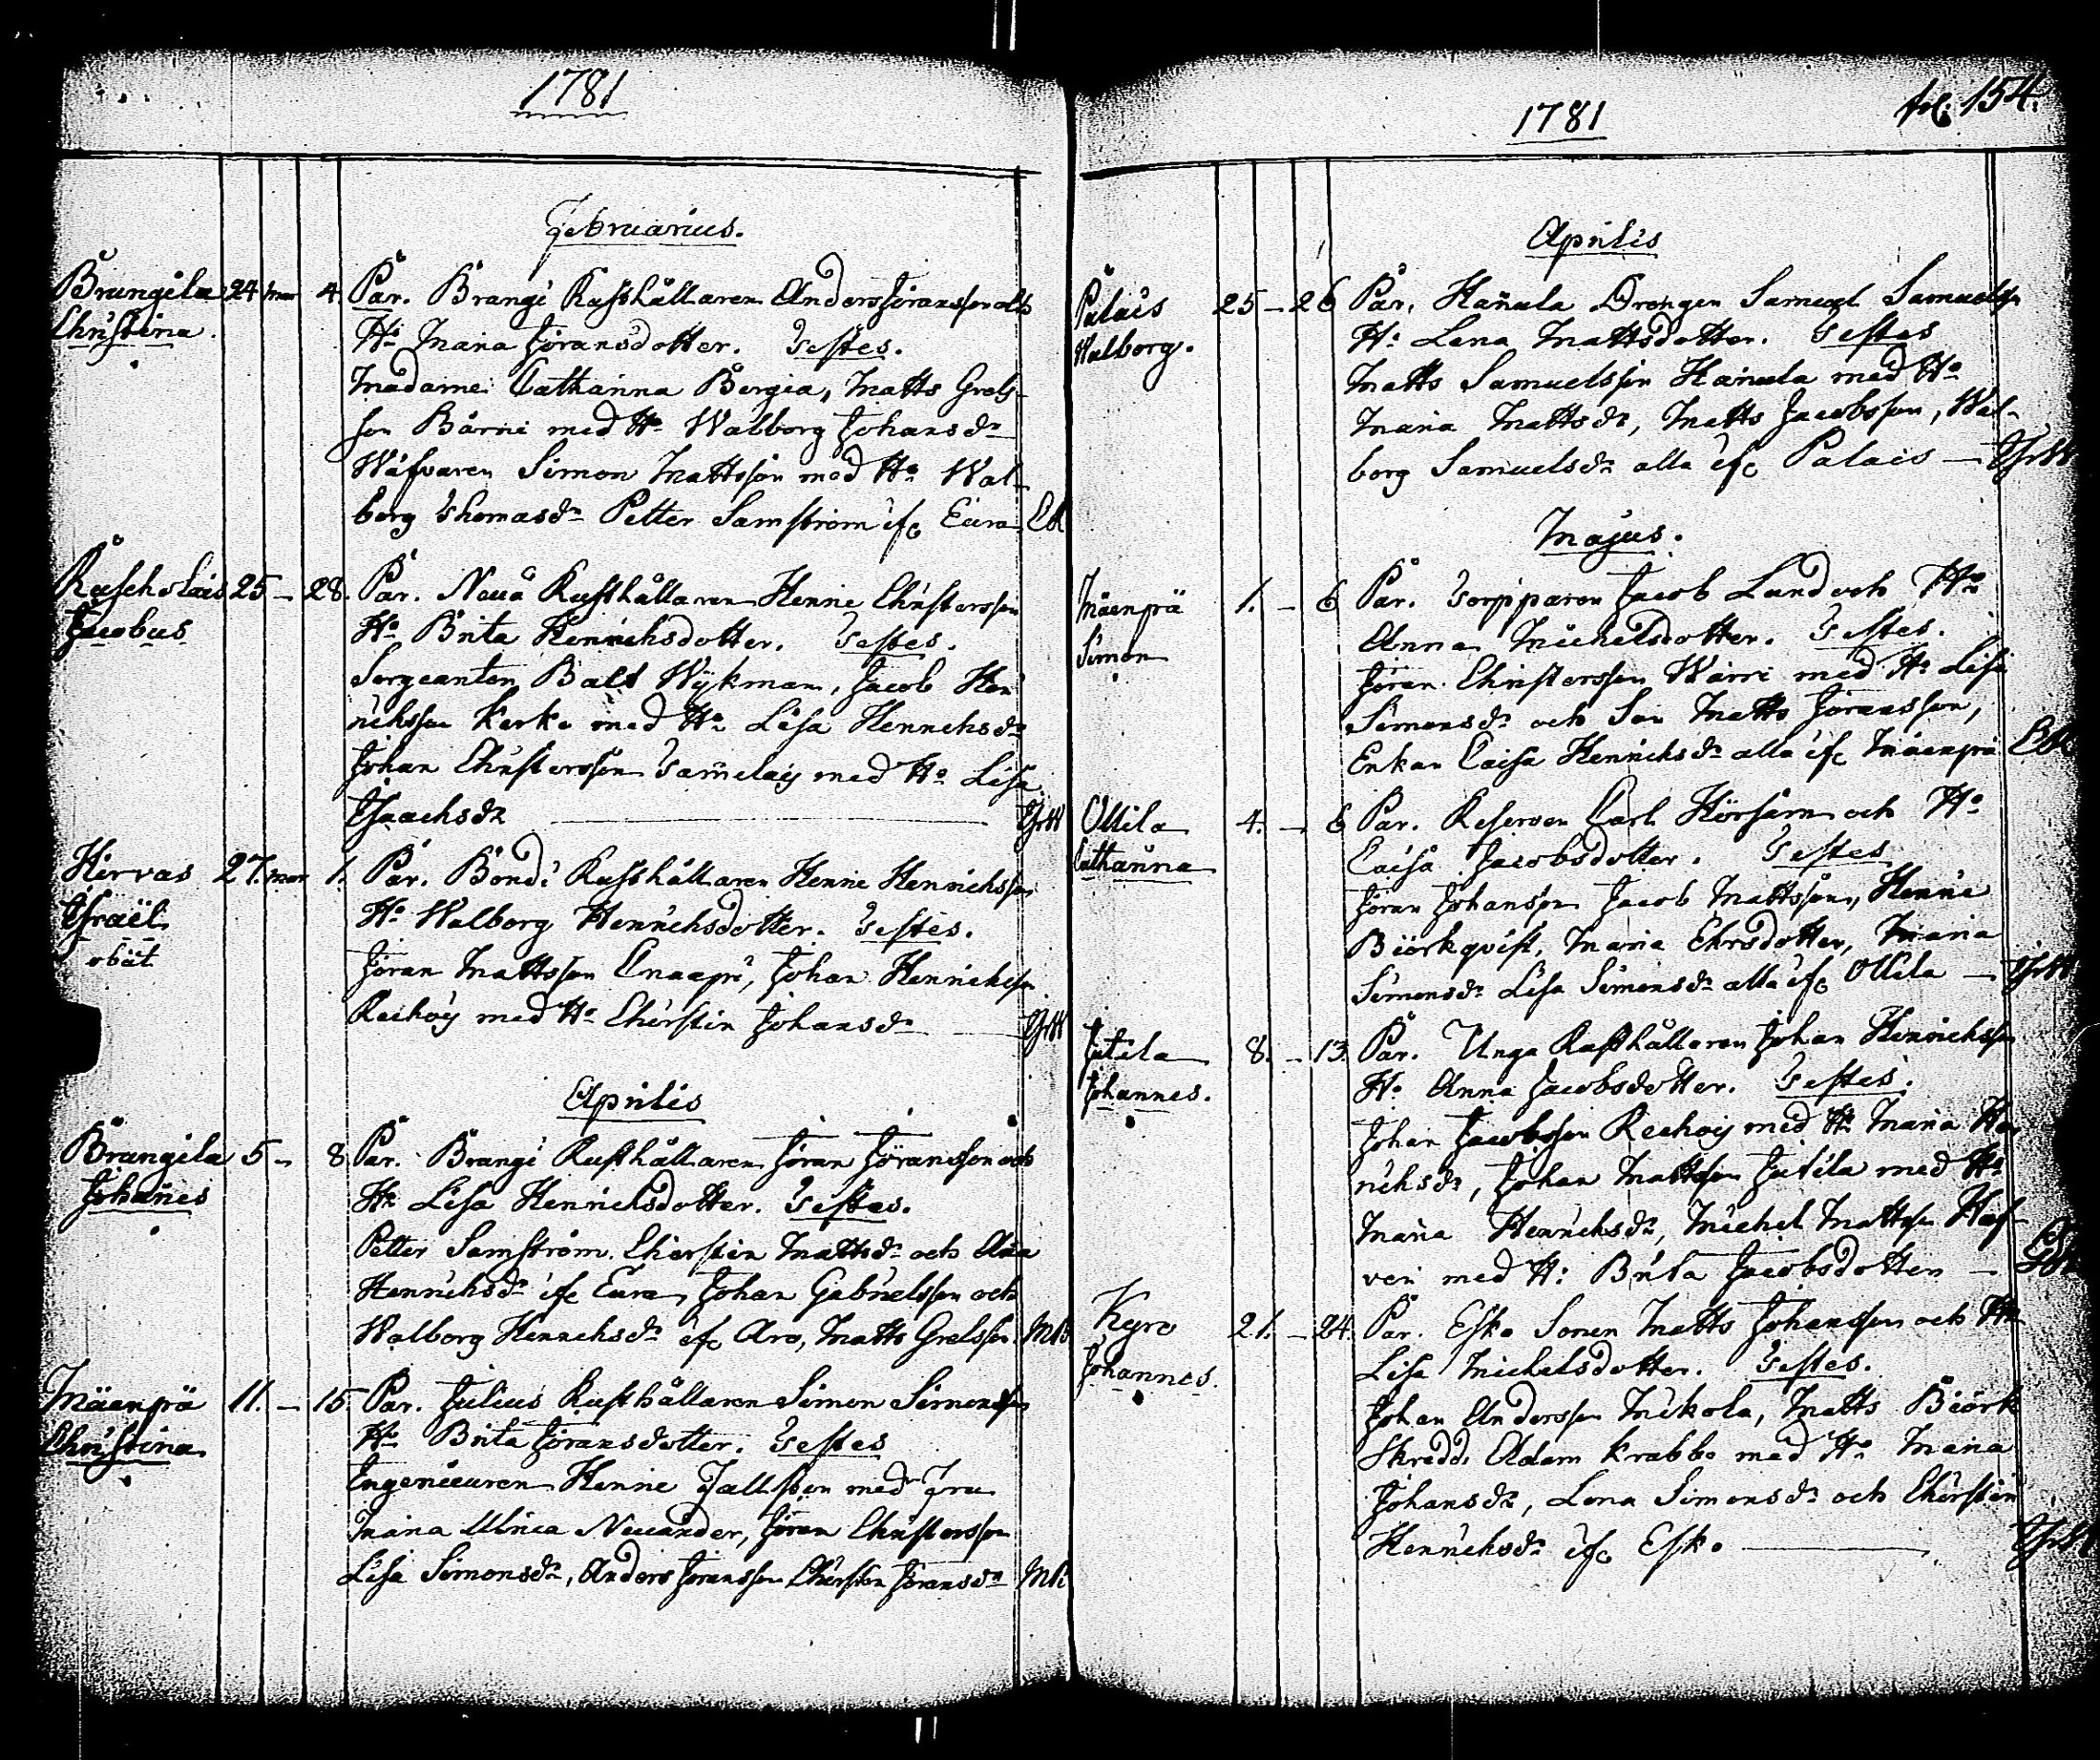 1781
Februarius.
Brangila 24 mar 4. Par. Brangi Rusthållaren Anders Jöransson och
Christina. H: Maria Jöransdotter. Testes.
Madame Catharina Bergia, Matts Grels-
son Bårni med H: Walborg Johansd:r
Wäfvaren Simon Mattsson med H: Wal-
borg Thomasd:r Petter Samström ifr. Eura
25 - 28. Par. Neuå Rusthållaren Henric Christersson
Jacobus H: Brita Henrichsdotter. Testes.
Sergeanten Balt Wijkman, Jacob Hen
richsson Kerko med H: Lisa Henrichsd:r
Johan Christersson Tammelaij med H: Lisa
Isaachsd:r
Hirvas 27. mar 1. Par. Bondi Rusthållaren Henric Henrichsson
Israël H: Walborg Henrichsdotter. Testes.
obiit Jöran Mattsson Anaapri, Johan Henrichsson
Reihoij med H: Chirstin Johansd:r
Aprilis
Brangila 5 - 8 Par. Brangi Rusthållaren Jöran Jöransson och
Johañes H: Lisa Henrichsdotter. Testes.
Petter Samström. Chirstin Mattsd:r och Aña
Henrichsd:r ifr. Eura, Johan Gabrielsson och
Walborg Henrichsd:r ifr. Aro, Matts Grelsson.
Mäenpä 11. - 15. Par. Julius Rusthållaren Simon Simonsson
Christina H: Brita Jöransdotter. Testes
Ingenieuren Henric Fallsten med Fru
Maria Ulrica Neuander, Jöran Christersson
Lisa Simonsd:r, Anders Jöransson Chirstin Jöransd:r
fol. 154.
1781
Aprilis
Palais 25 - 26 Par. Hañula Drengen Samuel Samuelsson
Walborg. H: Lena Mattsdotter. Testes
Matts Samuelsson Hañula med H:
Maria Mattsd:r, Matts Jacobsson, Wal-
borg Samuelsd:r alla ifr. Palais —
Majus.
Mäenpä 1. - 6 Par. Torpparen Jacob Lund och H:
Simon Anna Michelsdotter. Testes.
Jöran Christersson Wärri med H: Lisa
Simonsd:r och Son Matts Jöransson,
Enkan Caisa Henrichsd:r alla ifr. Mäenpä
Ollila 4. - 6 Par. Reserven Carl Hörsam och H:
Catharina Caisa Jacobsdotter. Testes
Jöran Johansson Jacob Mattsson, Henric
Biörkqvist, Maria Ehrsdotter, Maria
Simonsd:r Lisa Simonsd:r alla ifr. Ollila —
Jutila 8. - 13. Par. Unga Rusthållaren Johan Henrichsson
Johannes. H: Anna Jacobsdotter. Testes.
Johan Jacobsson Reihoij med H: Maria Hen
richsd:r, Johan Mattsson Jutila med H:
Maria Henrichsd:r, Michel Mattsson Haf-
veri med H: Brita Jacobsdotter —
Kyro 21. - 24. Par. Esko Sonen Matts Johansson och H:
Johannes. Lisa Michelsdotter. Testes.
Johan Andersson Mickola, Matts Biörk
Skredd. Adam Krabbe med H: Maria
Johansd:r, Lena Simonsd:r och Chirstin
Henrichsd:r ifr. Esko